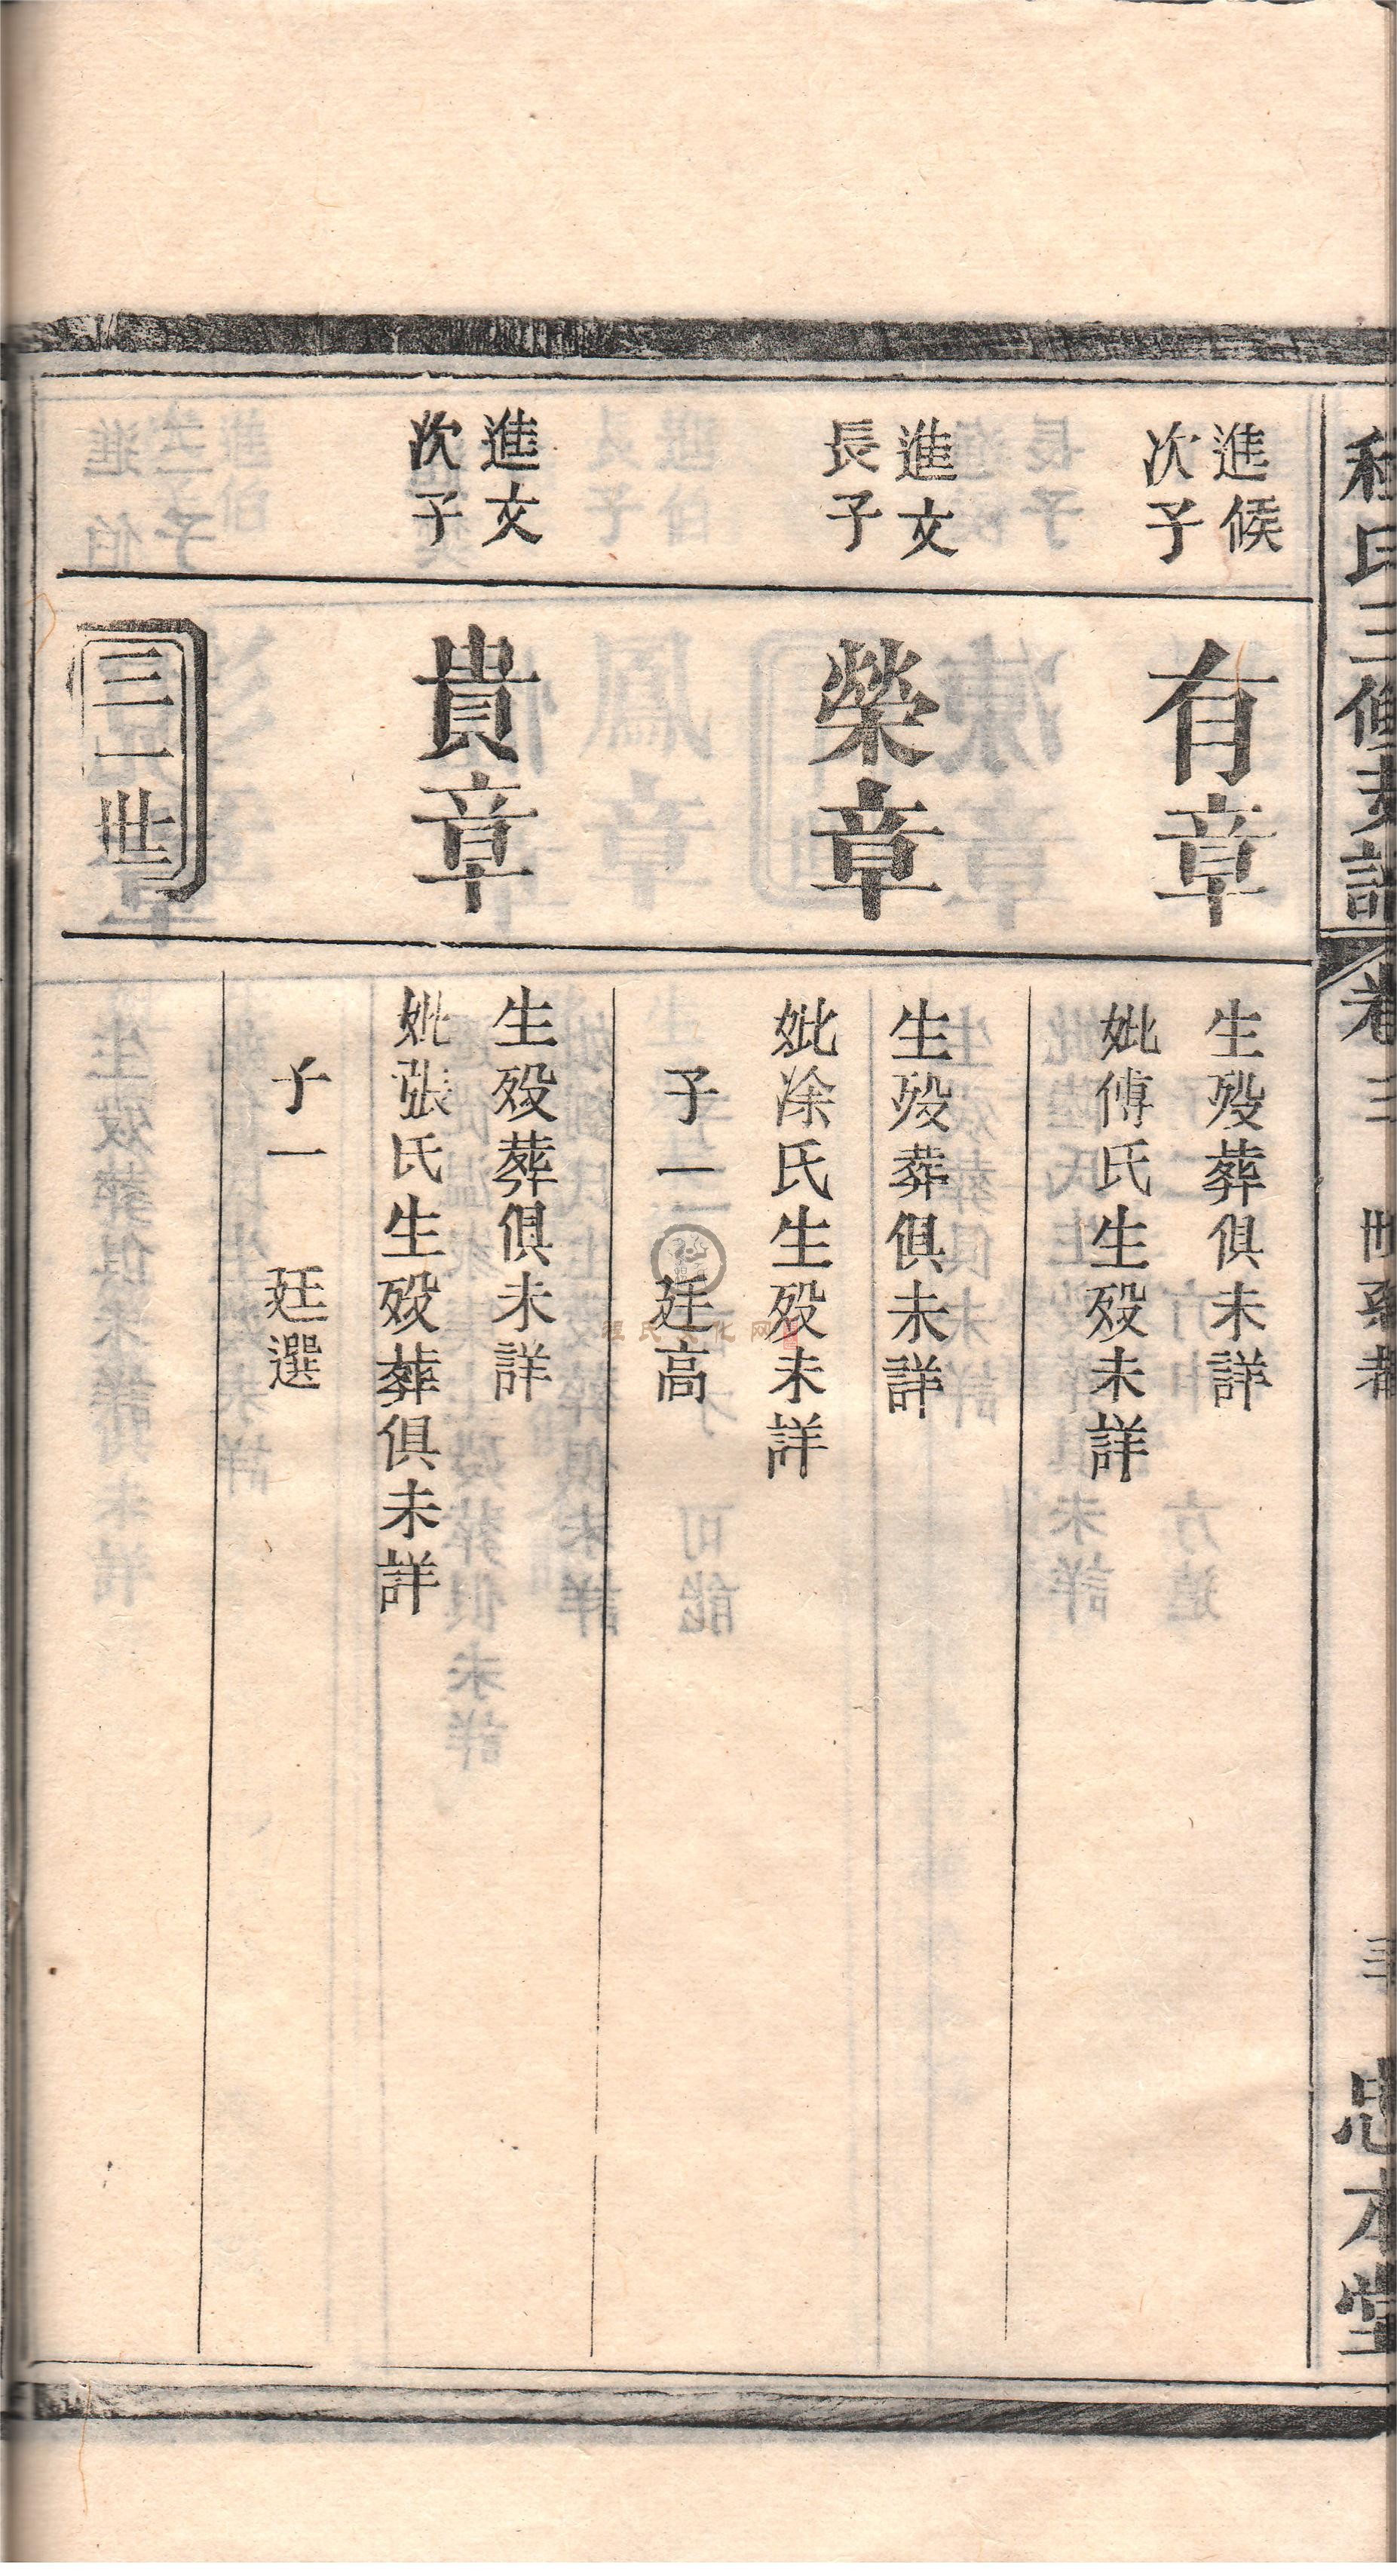 程氏三修支譜 卷三 世系 三 忠本堂
進候
次子
有章
生殁葬俱未詳
妣傅氏生殁未詳
進文
長子
榮章
生殁葬俱未詳
妣涂氏生殁未詳
子一 廷高
進文
次子
貴章
生殁葬俱未詳
妣張氏生殁葬俱未詳
子一 廷選
三一世
程氏文化网